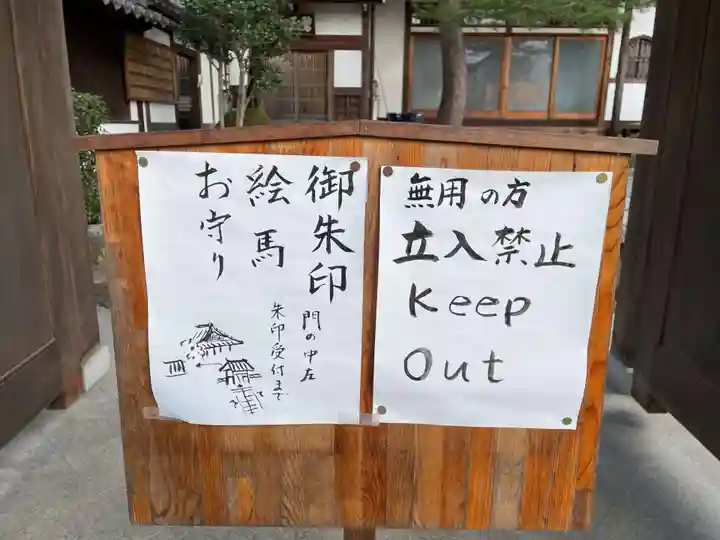 御朱印
絵馬
お守り
門の中左
朱印受付まで
無用の方
立入禁止
Keep
Out